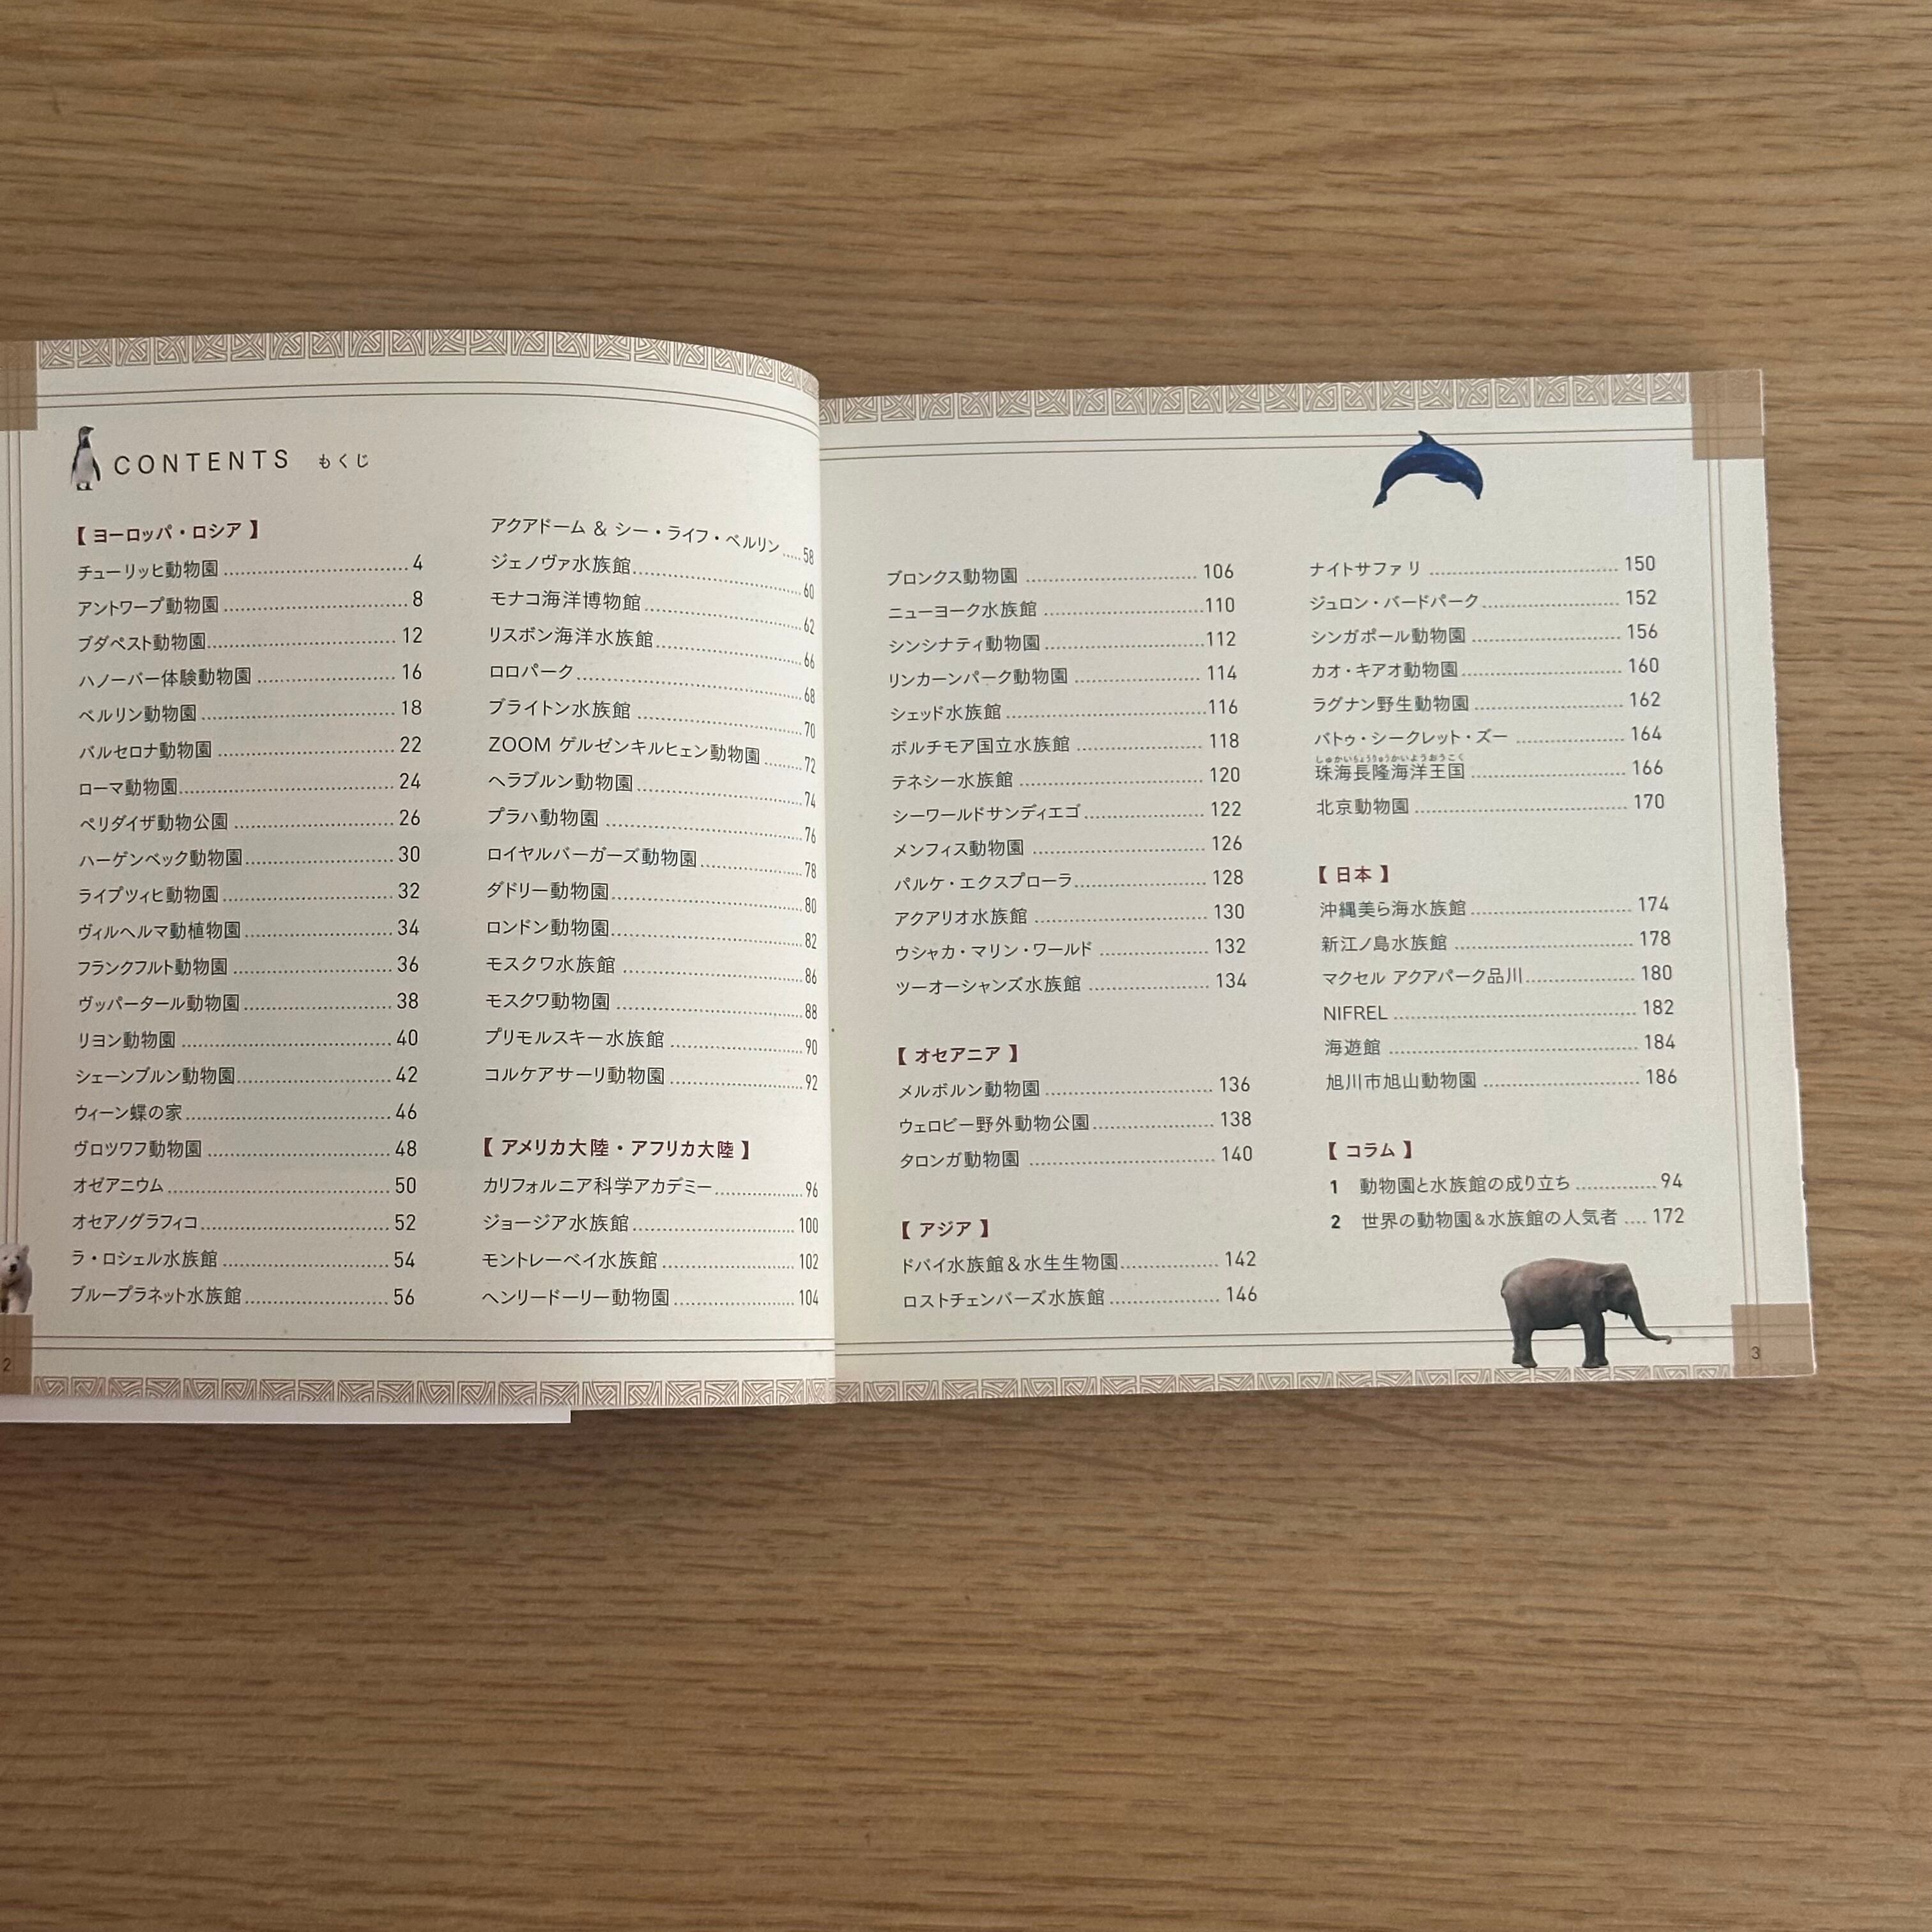 CONTENTS もくじ
【 ヨーロッパ・ロシア 】
チューリッヒ動物園 4
アントワープ動物園 8
ブダペスト動物園 12
ハノーバー体験動物園 16
ベルリン動物園 18
バルセロナ動物園 22
ローマ動物園 24
ペリダイザ動物公園 26
ハーゲンベック動物園 30
ライプツィヒ動物園 32
ヴィルヘルマ動植物園 34
フランクフルト動物園 36
ヴッパータール動物園 38
リヨン動物園 40
シェーンブルン動物園 42
ウィーン蝶の家 46
ヴロツワフ動物園 48
オゼアニウム 50
オセアノグラフィコ 52
ラ・ロシェル水族館 54
ブループラネット水族館 56
2
アクアドーム & シー・ライフ・ベルリン 58
ジェノヴァ水族館 60
モナコ海洋博物館 62
リスボン海洋水族館 66
ロロパーク 68
ブライトン水族館 70
ZOOM ゲルゼンキルヒェン動物園 72
ヘラブルン動物園 74
プラハ動物園 76
ロイヤルバーガーズ動物園 78
ダドリー動物園 80
ロンドン動物園 82
モスクワ水族館 86
モスクワ動物園 88
プリモルスキー水族館 90
コルケアサーリ動物園 92
【 アメリカ大陸・アフリカ大陸 】
カリフォルニア科学アカデミー 96
ジョージア水族館 100
モントレーベイ水族館 102
ヘンリードーリー動物園 104
ブロンクス動物園 106
ニューヨーク水族館 110
シンシナティ動物園 112
リンカーンパーク動物園 114
シェッド水族館 116
ボルチモア国立水族館 118
テネシー水族館 120
シーワールドサンディエゴ 122
メンフィス動物園 126
パルケ・エクスプローラ 128
アクアリオ水族館 130
ウシャカ・マリン・ワールド 132
ツーオーシャンズ水族館 134
【 オセアニア 】
メルボルン動物園 136
ウェロビー野外動物公園 138
タロンガ動物園 140
【 アジア 】
ドバイ水族館＆水生生物園 142
ロストチェンバーズ水族館 146
ナイトサファリ 150
ジュロン・バードパーク 152
シンガポール動物園 156
カオ・キアオ動物園 160
ラグナン野生動物園 162
バトゥ・シークレット・ズー 164
しゅかいちょうりゅうかいようおうこく
珠海長隆海洋王国 166
北京動物園 170
【 日本 】
沖縄美ら海水族館 174
新江ノ島水族館 178
マクセル アクアパーク品川 180
NIFREL 182
海遊館 184
旭川市旭山動物園 186
【 コラム 】
1 動物園と水族館の成り立ち 94
2 世界の動物園＆水族館の人気者 172
3